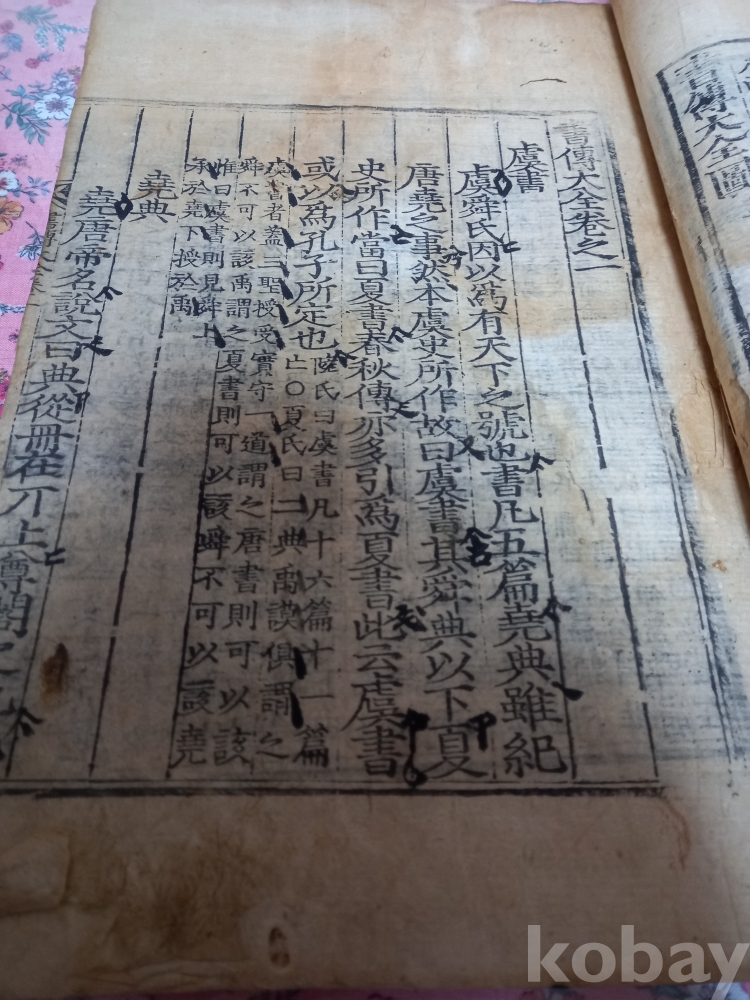 書傳大全圖
書傳大全卷之一
虞書
虞舜氏因以為有天下之號也書凡五篇堯典雖紀
唐堯之事然本虞史所作故曰虞書其舜典以下夏
史所作當曰夏書春秋傳亦多引為夏書此云虞書
或以為孔子所定也
陸氏曰虞書凡十六篇十一篇
亡○夏氏曰二典禹謨俱謂之
虞書者盖三聖授受實守一道謂之唐書則可以該
舜不可以該禹謂之夏書則可以該舜不可以該堯
惟曰虞書則見舜上
承於堯下授於禹
堯典
堯唐帝名說文曰典從冊在丌上尊閣之也
kobay